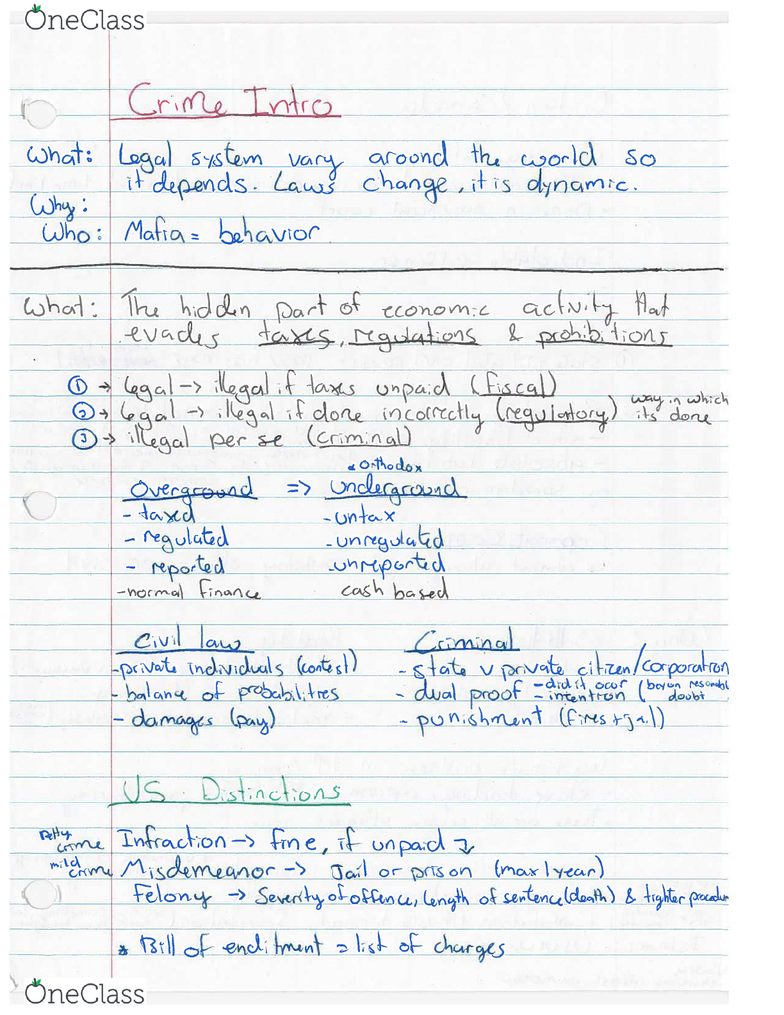 OneClass
Crime Intro
What: Legal system vary around the world so
it depends. Laws change, it is dynamic.
Why:
Who: Mafia = behavior
What: The hidden part of economic activity that
evades taxes, regulations & prohibitions
① → legal → illegal if taxes unpaid (fiscal)
② → legal → illegal if done incorrectly (regulatory) way in which
its done
③ → illegal per se (criminal)
• Orthodox
Overground => Underground
- taxed - untax
- regulated - unregulated
- reported - unreported
- normal finance cash based
Civil law Criminal
- private individuals (contest) - state v private citizen/corporation
- balance of probabilities - dual proof - did it ocor
- intention (beyon resonabl
doubt
- damages (pay) - punishment (fines + jail)
US Distinctions
Petty crime Infraction → fine, if unpaid ↴
mild crime Misdemeanor → Jail or prison (max 1 year)
Felony → Severity of offence, length of sentence (death) & tighter procedur
* Bill of enditment = list of charges
OneClass